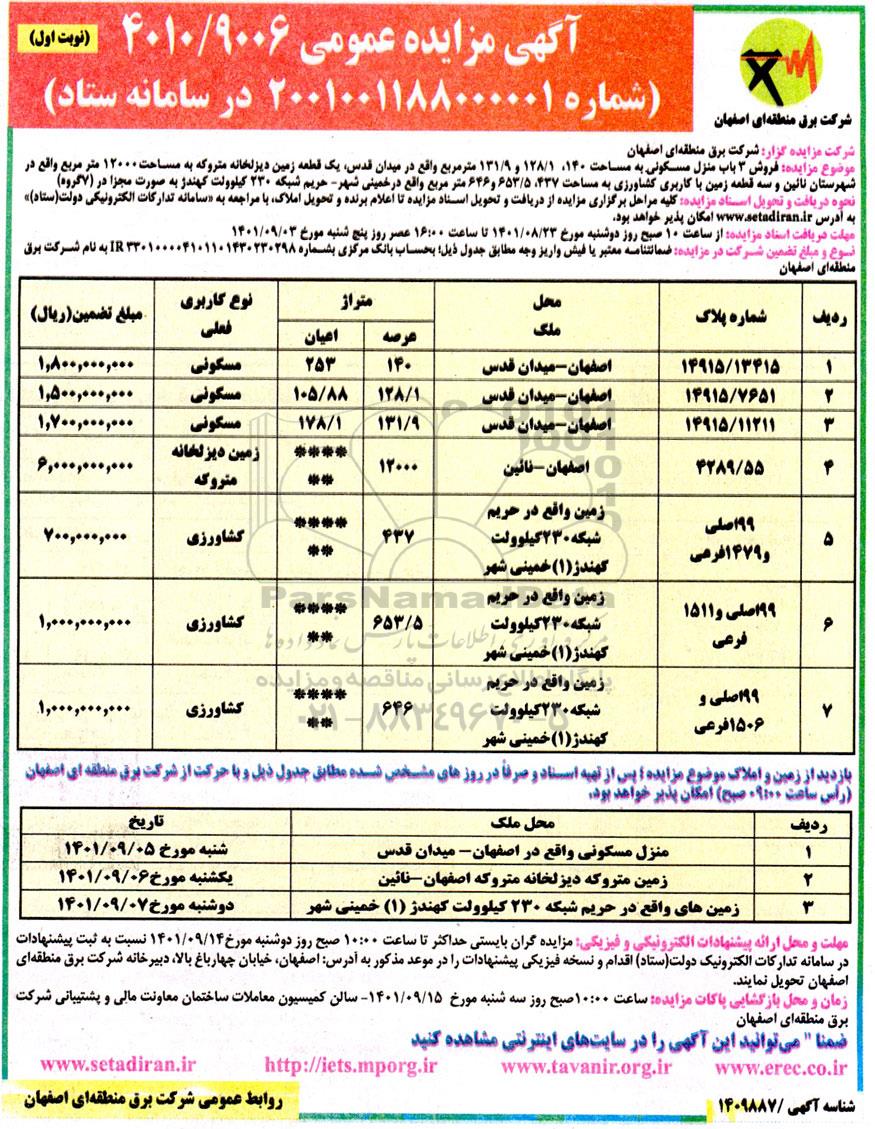 آگهی مزایده عمومی ۴۰۱۰/۹۰۰۶
(نوبت اول)
(شماره ۲۰۰۱۰۰۱۱۸۸۰۰۰۰۰۱ در سامانه ستاد)
شرکت برق منطقه‌ای اصفهان
شرکت مزایده گزار: شرکت برق منطقه‌ای اصفهان
موضوع مزایده: فروش ۳ باب منزل مسکونی به مساحت ۱۴۰، ۱۲۸/۱ و ۱۳۱/۹ مترمربع واقع در میدان قدس، یک قطعه زمین دیزلخانه متروکه به مساحت ۱۲۰۰۰ متر مربع واقع در
شهرستان نائین و سه قطعه زمین با کاربری کشاورزی به مساحت ۴۳۷، ۶۵۳/۵ و ۶۴۶ متر مربع واقع درخمینی شهر- حریم شبکه ۲۳۰ کیلوولت کهندژ به صورت مجزا در (۷گروه)
نحوه دریافت و تحویل اسناد مزایده: کلیه مراحل برگزاری مزایده از دریافت و تحویل اسناد مزایده تا اعلام برنده و تحویل املاک، با مراجعه به «سامانه تدارکات الکترونیکی دولت(ستاد)»
به آدرس www.setadiran.ir امکان پذیر خواهد بود.
مهلت دریافت اسناد مزایده: از ساعت ۱۰ صبح روز دوشنبه مورخ ۱۴۰۱/۰۸/۲۳ تا ساعت ۱۶:۰۰ عصر روز پنج شنبه مورخ ۱۴۰۱/۰۹/۰۳
نوع و مبلغ تضمین شرکت در مزایده: ضمانتنامه معتبر یا فیش واریز وجه مطابق جدول ذیل؛ بحساب بانک مرکزی بشماره IR ۳۳۰۱۰۰۰۰۴۱۰۱۱۰۱۴۳۰۲۳۰۲۹۸ به نام شرکت برق
منطقه‌ای اصفهان
ردیف شماره پلاک محل ملک متراژ نوع کاربری فعلی مبلغ تضمین(ریال)
عرصه اعیان
۱ ۱۴۹۱۵/۱۳۴۱۵ اصفهان-میدان قدس ۱۴۰ ۲۵۳ مسکونی ۱,۸۰۰,۰۰۰,۰۰۰
۲ ۱۴۹۱۵/۷۶۵۱ اصفهان-میدان قدس ۱۲۸/۱ ۱۰۵/۸۸ مسکونی ۱,۵۰۰,۰۰۰,۰۰۰
۳ ۱۴۹۱۵/۱۱۲۱۱ اصفهان-میدان قدس ۱۳۱/۹ ۱۷۸/۱ مسکونی ۱,۷۰۰,۰۰۰,۰۰۰
۴ ۴۲۸۹/۵۵ اصفهان-نائین ۱۲۰۰۰ ****** زمین دیزلخانه متروکه ۶,۰۰۰,۰۰۰,۰۰۰
۵ ۹۹اصلی و۱۴۷۹فرعی زمین واقع در حریم شبکه۲۳۰کیلوولت کهندژ(۱)خمینی شهر ۴۳۷ ****** کشاورزی ۷۰۰,۰۰۰,۰۰۰
۶ ۹۹اصلی و۱۵۱۱ فرعی زمین واقع در حریم شبکه۲۳۰کیلوولت کهندژ(۱)خمینی شهر ۶۵۳/۵ ****** کشاورزی ۱,۰۰۰,۰۰۰,۰۰۰
۷ ۹۹اصلی و ۱۵۰۶فرعی زمین واقع در حریم شبکه۲۳۰کیلوولت کهندژ(۱)خمینی شهر ۶۴۶ ****** کشاورزی ۱,۰۰۰,۰۰۰,۰۰۰
ParsNamadData
پایگاه اطلاع رسانی مناقصه و مزایده
۰۲۱-۸۸۳۴۹۶۷۰-۵
بازدید از زمین و املاک موضوع مزایده؛ پس از تهیه اسناد و صرفاً در روز های مشخص شده مطابق جدول ذیل و با حرکت از شرکت برق منطقه ای اصفهان
(رأس ساعت ۰۹:۰۰ صبح) امکان پذیر خواهد بود.
ردیف محل ملک تاریخ
۱ منزل مسکونی واقع در اصفهان- میدان قدس شنبه مورخ ۱۴۰۱/۰۹/۰۵
۲ زمین متروکه دیزلخانه متروکه اصفهان-نائین یکشنبه مورخ۱۴۰۱/۰۹/۰۶
۳ زمین های واقع در حریم شبکه ۲۳۰ کیلوولت کهندژ (۱) خمینی شهر دوشنبه مورخ۱۴۰۱/۰۹/۰۷
مهلت و محل ارائه پیشنهادات الکترونیکی و فیزیکی: مزایده گران بایستی حداکثر تا ساعت ۱۰:۰۰ صبح روز دوشنبه مورخ۱۴۰۱/۰۹/۱۴ نسبت به ثبت پیشنهادات
در سامانه تدارکات الکترونیک دولت(ستاد) اقدام و نسخه فیزیکی پیشنهادات را در موعد مذکور به آدرس: اصفهان، خیابان چهارباغ بالا، دبیرخانه شرکت برق منطقه‌ای
اصفهان تحویل نمایند.
زمان و محل بازگشایی پاکات مزایده: ساعت ۱۰:۰۰صبح روز سه شنبه مورخ ۱۴۰۱/۰۹/۱۵- سالن کمیسیون معاملات ساختمان معاونت مالی و پشتیبانی شرکت
برق منطقه‌ای اصفهان
ضمنا " می‌توانید این آگهی را در سایت‌های اینترنتی مشاهده کنید
www.erec.co.ir www.tavanir.org.ir http://iets.mporg.ir www.setadiran.ir
شناسه آگهی /۱۴۰۹۸۸۷
روابط عمومی شرکت برق منطقه‌ای اصفهان